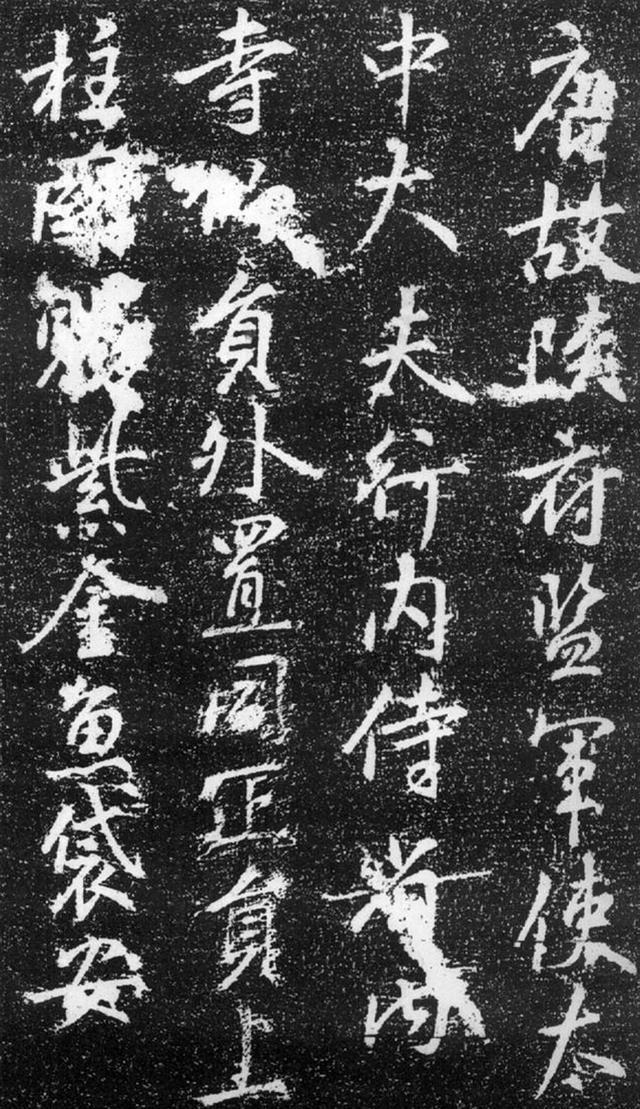 唐故陝府監軍使太
中大夫行内侍省内
寺員外置同正員上
柱國賜紫金魚袋安